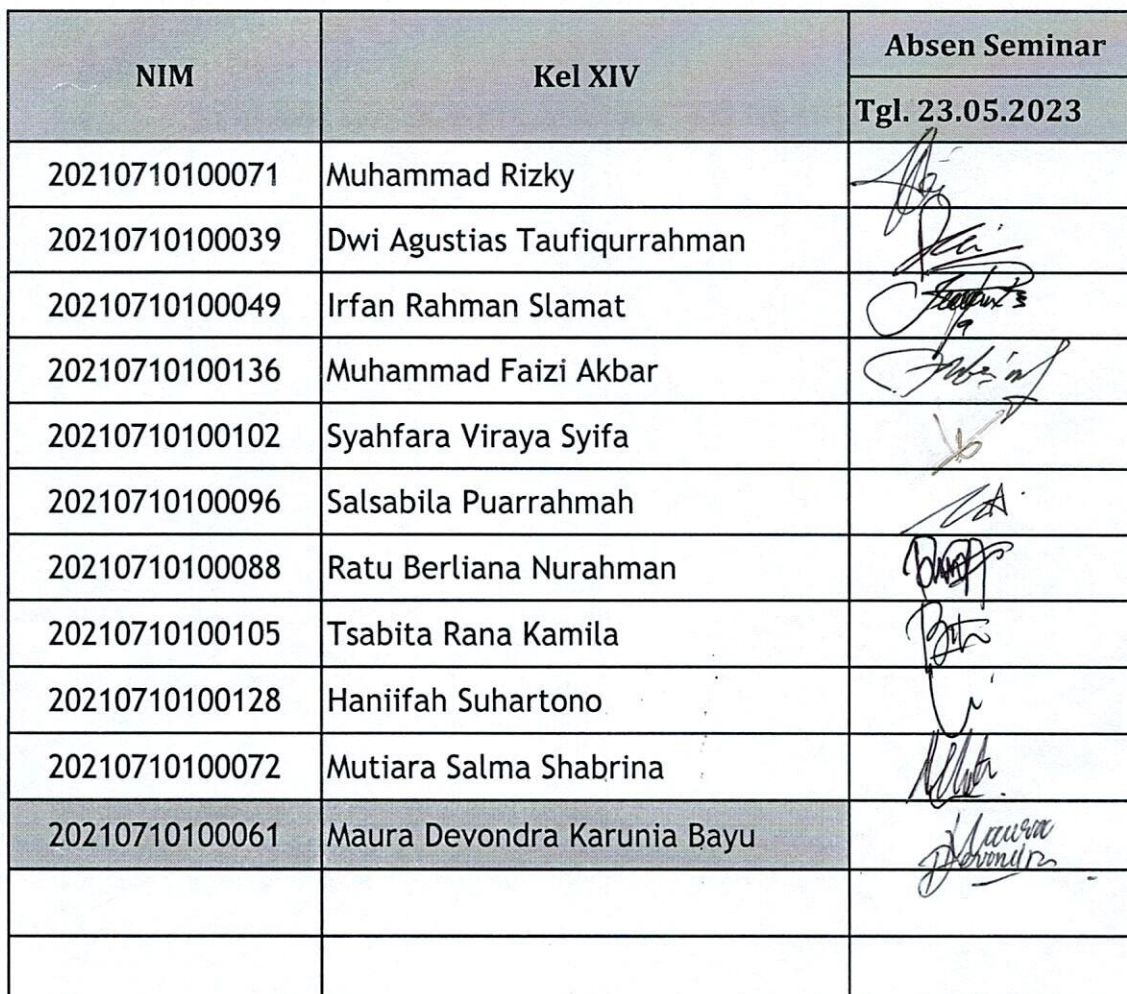 NIM Kel XIV Absen Seminar
Tgl. 23.05.2023
20210710100071 Muhammad Rizky
20210710100039 Dwi Agustias Taufiqurrahman
20210710100049 Irfan Rahman Slamat
20210710100136 Muhammad Faizi Akbar
20210710100102 Syahfara Viraya Syifa
20210710100096 Salsabila Puarrahmah
20210710100088 Ratu Berliana Nurahman
20210710100105 Tsabita Rana Kamila
20210710100128 Haniifah Suhartono
20210710100072 Mutiara Salma Shabrina
20210710100061 Maura Devondra Karunia Bayu Maura
Devondra